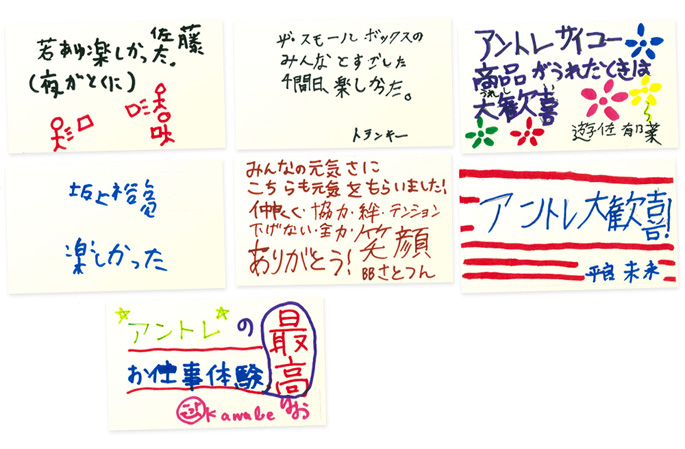 佐藤
若あゆ楽しかった。
(夜がとくに)
ザ・スモールボックスの
みんなとすごした
4間日、楽しかった。
トランキー
アントレサイコー
商品がうれたときは
うれしい
大歓喜
遊佐
坂上裕亮
楽しかった
みんなの元気さに
こちらも元気をもらいました!
仲良く・協力・絆・テンション
下げない・全力・笑顔
ありがとう!
BBさとつん
アントレ大歓喜!
未来
アントレの
お仕事体験
最高
Kawabe